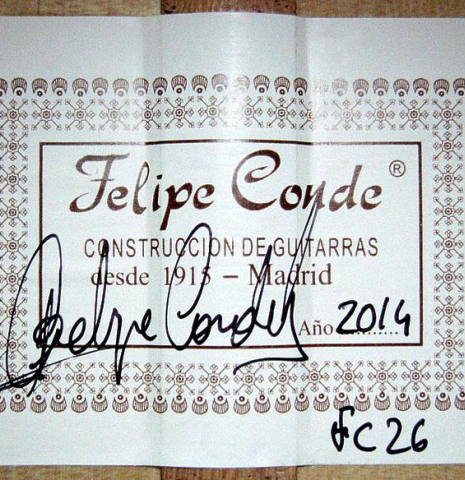 Felipe Conde ®
CONSTRUCCION DE GUITARRAS
desde 1915 – Madrid
Felipe Conde
Año 2014
FC 26